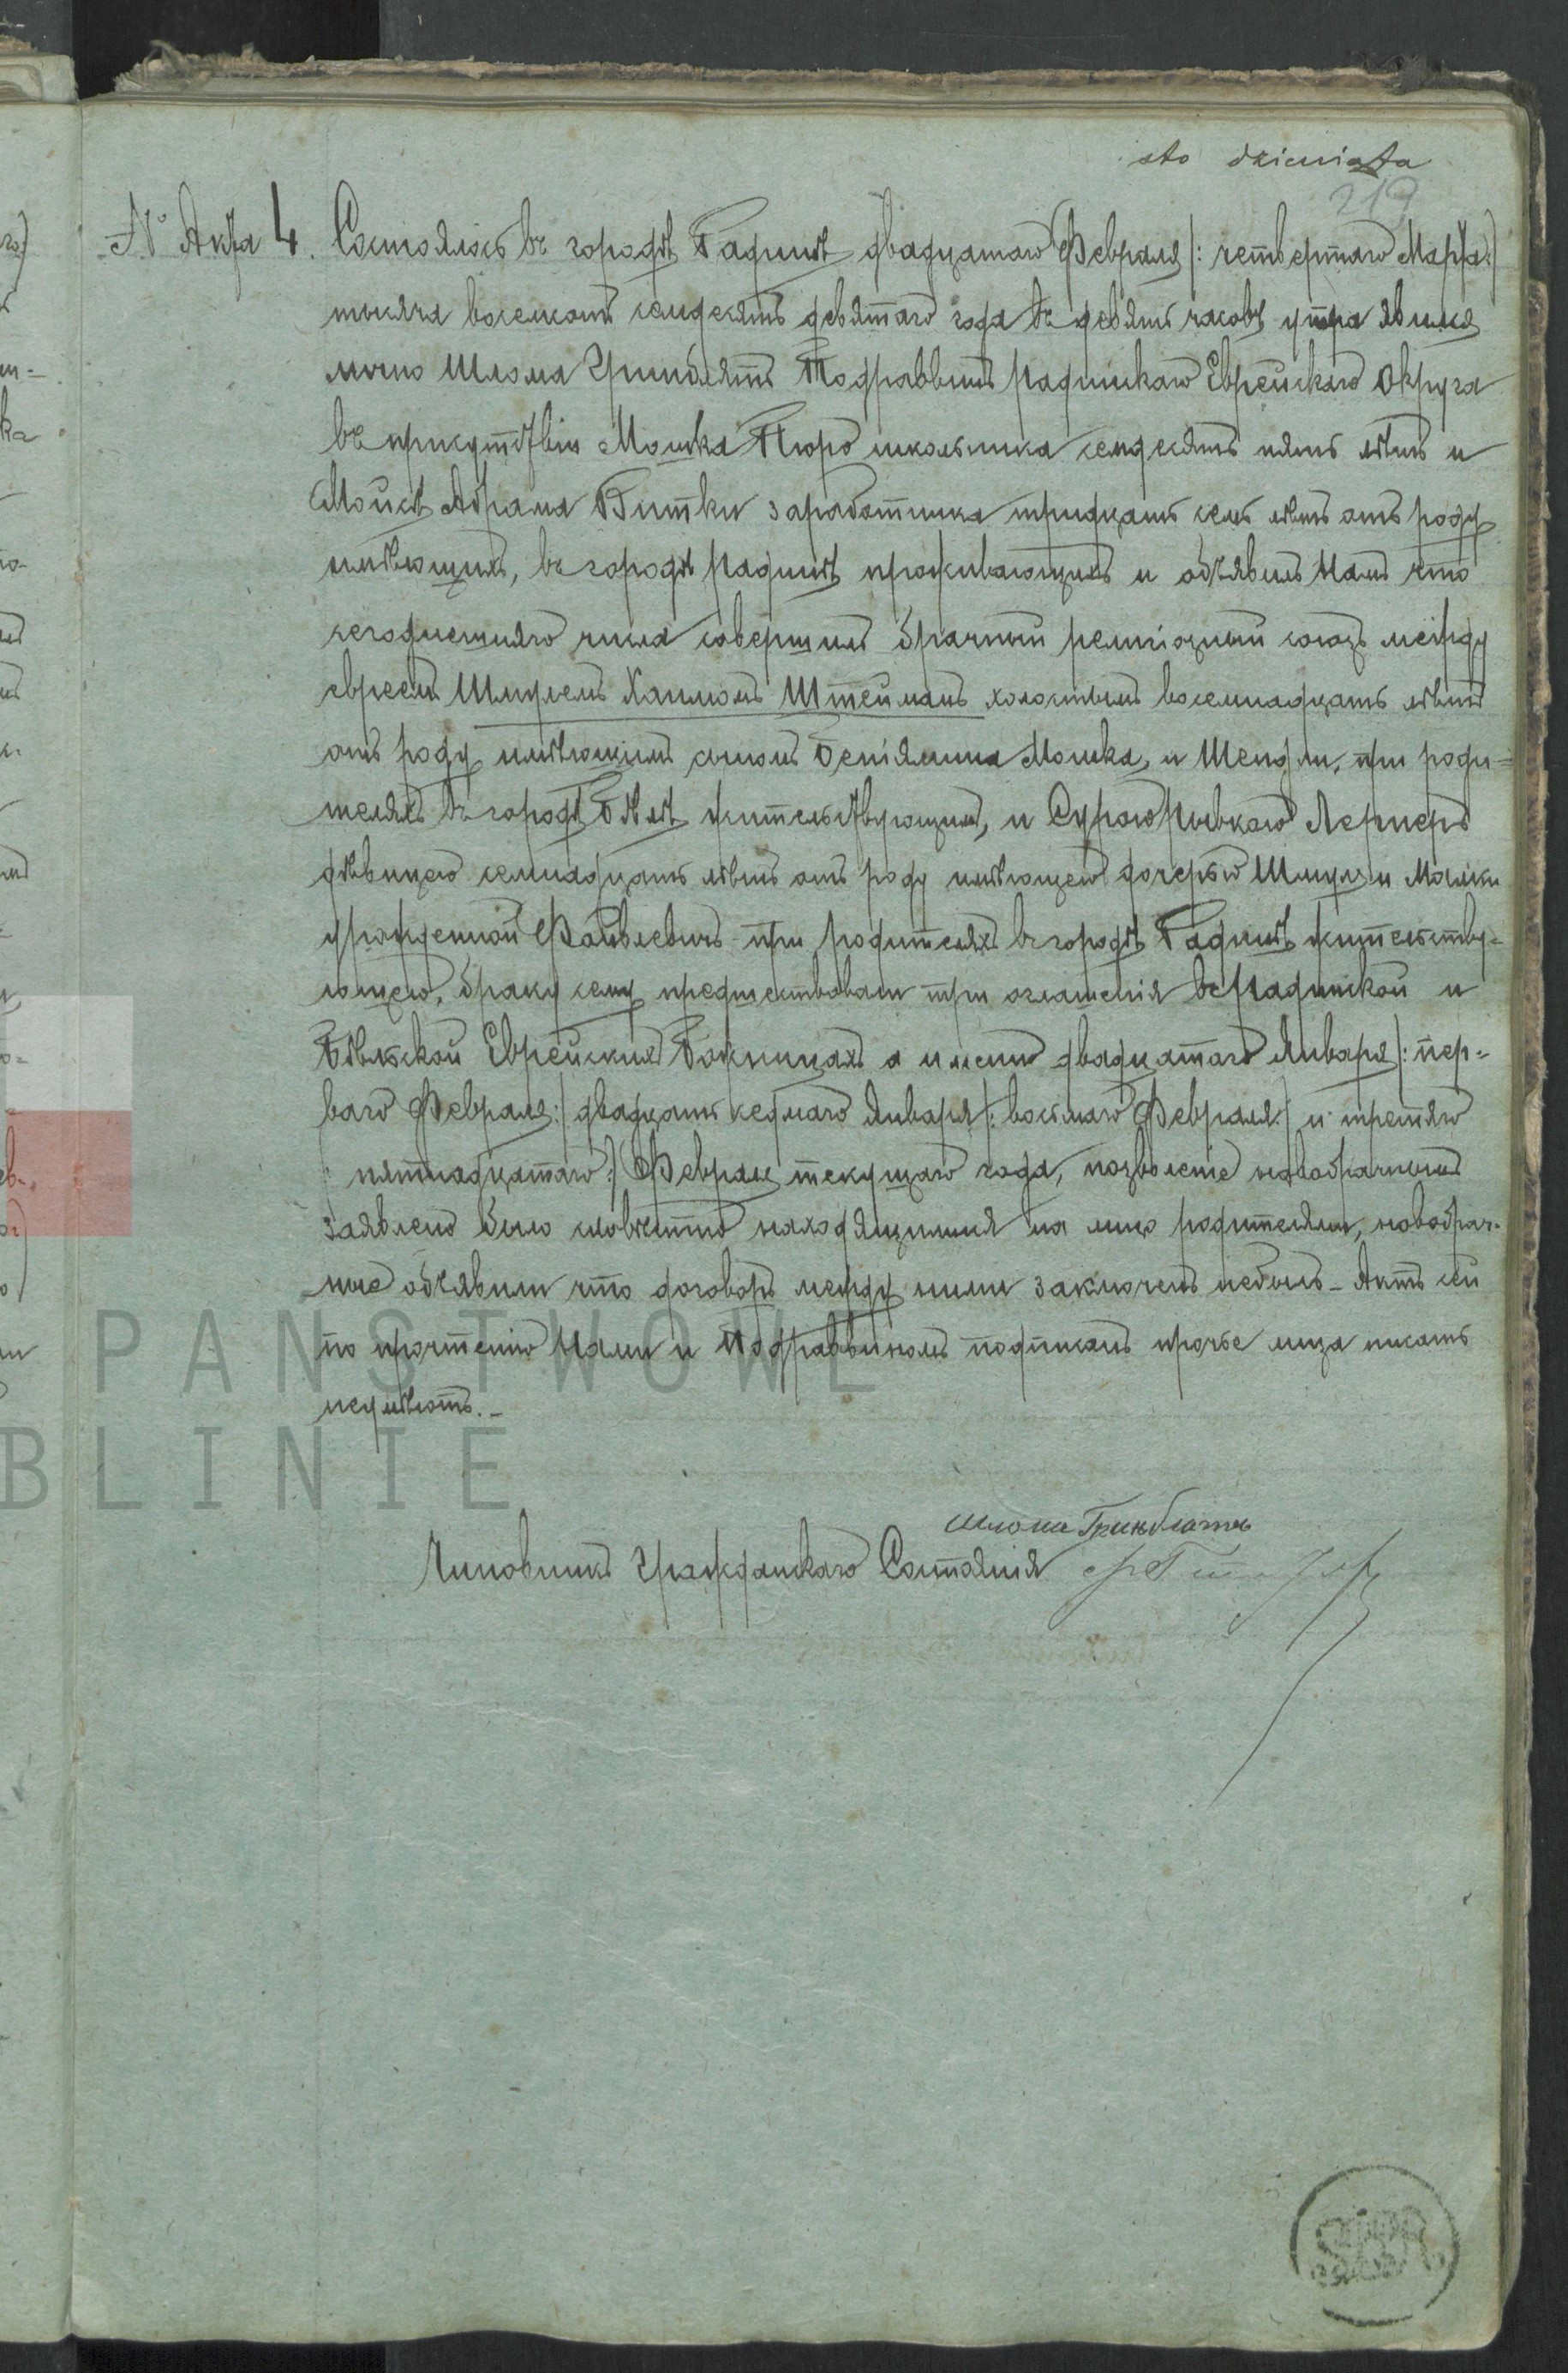 sto dziewiąta
219
№ Акта 4. Состоялось въ городѣ Радинѣ двадцатаго Февраля /: четвертаго Марта :/
тысяча восемьсотъ семдесятъ девятаго года въ девять часовъ утра явился
лично Шлома Гринблятъ Подраввинъ Радинскаго Еврейскаго Округа
въ присутствіи Мошка Пюро школьника семдесятъ пять лѣтъ и
Мойсѣ Абрама Витки заработника тридцать семь лѣтъ отъ роду
имѣющихъ, въ городѣ Радинѣ проживающихъ и объявилъ Намъ что
сегоднешняго числа совершилъ брачный религіозный союзъ между
евреемъ Шмулемъ Хаимомъ Штейманъ холостымъ восемнадцать лѣтъ
отъ роду имѣющимъ сыномъ Беніямина Мошка, и Шендли, при роди=
теляхъ въ городѣ Бѣлѣ жительствующимъ, и Сурою Рывкою Лернеръ
дѣвицею семнадцать лѣтъ отъ роду имѣющею дочерью Шмуля и Малки
урожденной Файвлевичъ при родителяхъ въ городѣ Радинѣ жительству=
ющею, браку сему предшествовали три оглашенія въ Радинской и
Бѣльской Еврейскихъ Божницахъ а именно двадцатаго Января /: пер=
ваго Февраля :/ двадцать седмаго Января /: восьмаго Февраля :/ и третяго
/: пятнадцатаго :/ Февраля текущаго года, позволеніе новобрачнымъ
заявлено было словѣстно находящимися на лицо родителями, новобрач-
ные объявили что договоръ между ними заключенъ небылъ - Актъ сей
по прочтенію Нами и Подраввиномъ подписанъ прочіе лица писать
неумѣютъ. -
Шлома Гринблатъ
Чиновникъ Гражданскаго Состоянія
PAŃSTWOWE
BLINIE